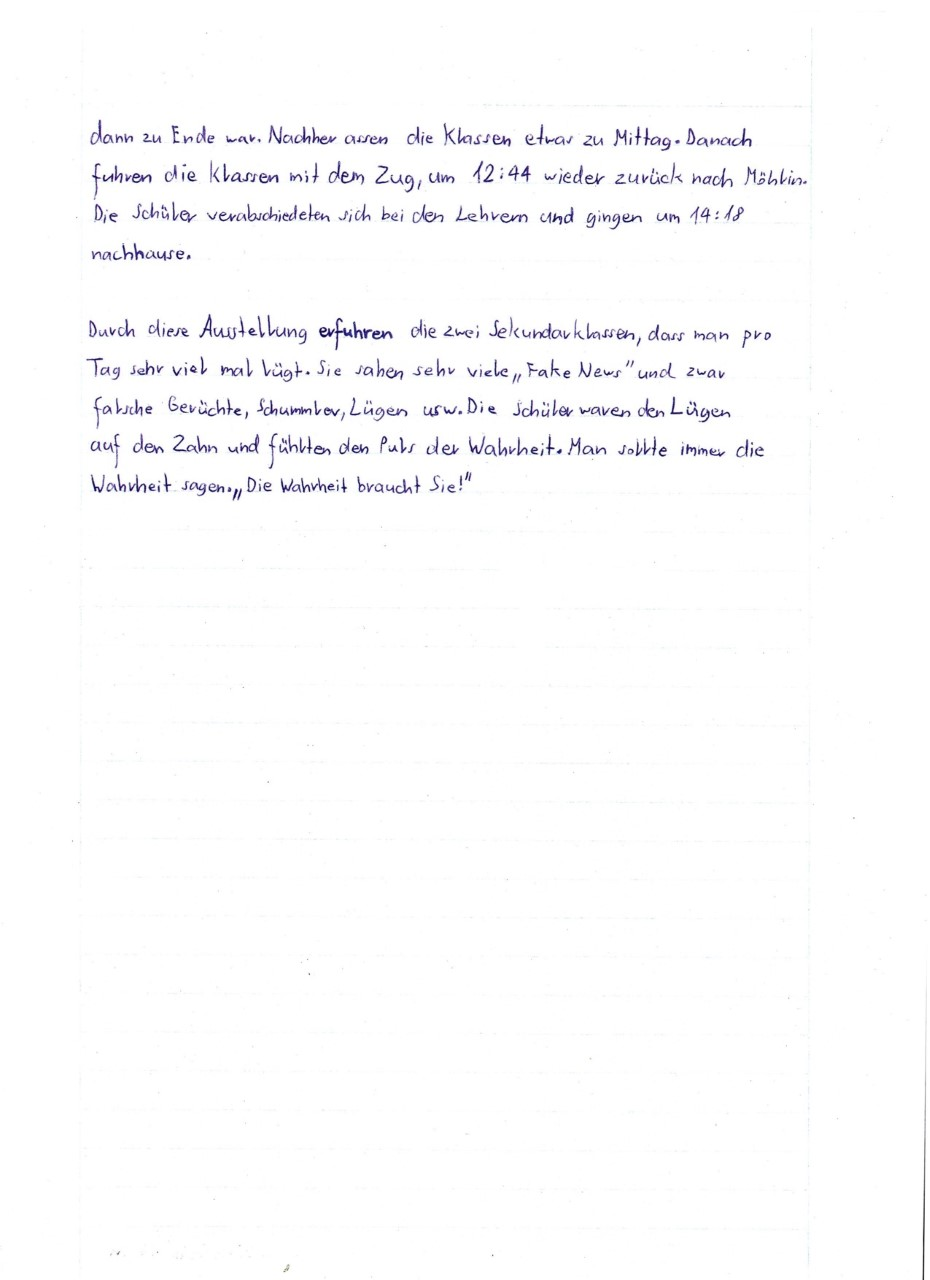 dann zu Ende war. Nachher assen die Klassen etwas zu Mittag. Danach
fuhren die Klassen mit dem Zug, um 12:44 wieder zurück nach Möhlin.
Die Schüler verabschiedeten sich bei den Lehrern und gingen um 14:18
nachhause.
Durch diese Ausstellung erfuhren die zwei Sekundarklassen, dass man pro
Tag sehr viel mal lügt. Sie sahen sehr viele „Fake News" und zwar
falsche Gerüchte, Schummler, Lügen usw. Die Schüler waren den Lügen
auf den Zahn und fühlten den Puls der Wahrheit. Man sollte immer die
Wahrheit sagen. „Die Wahrheit braucht Sie!"